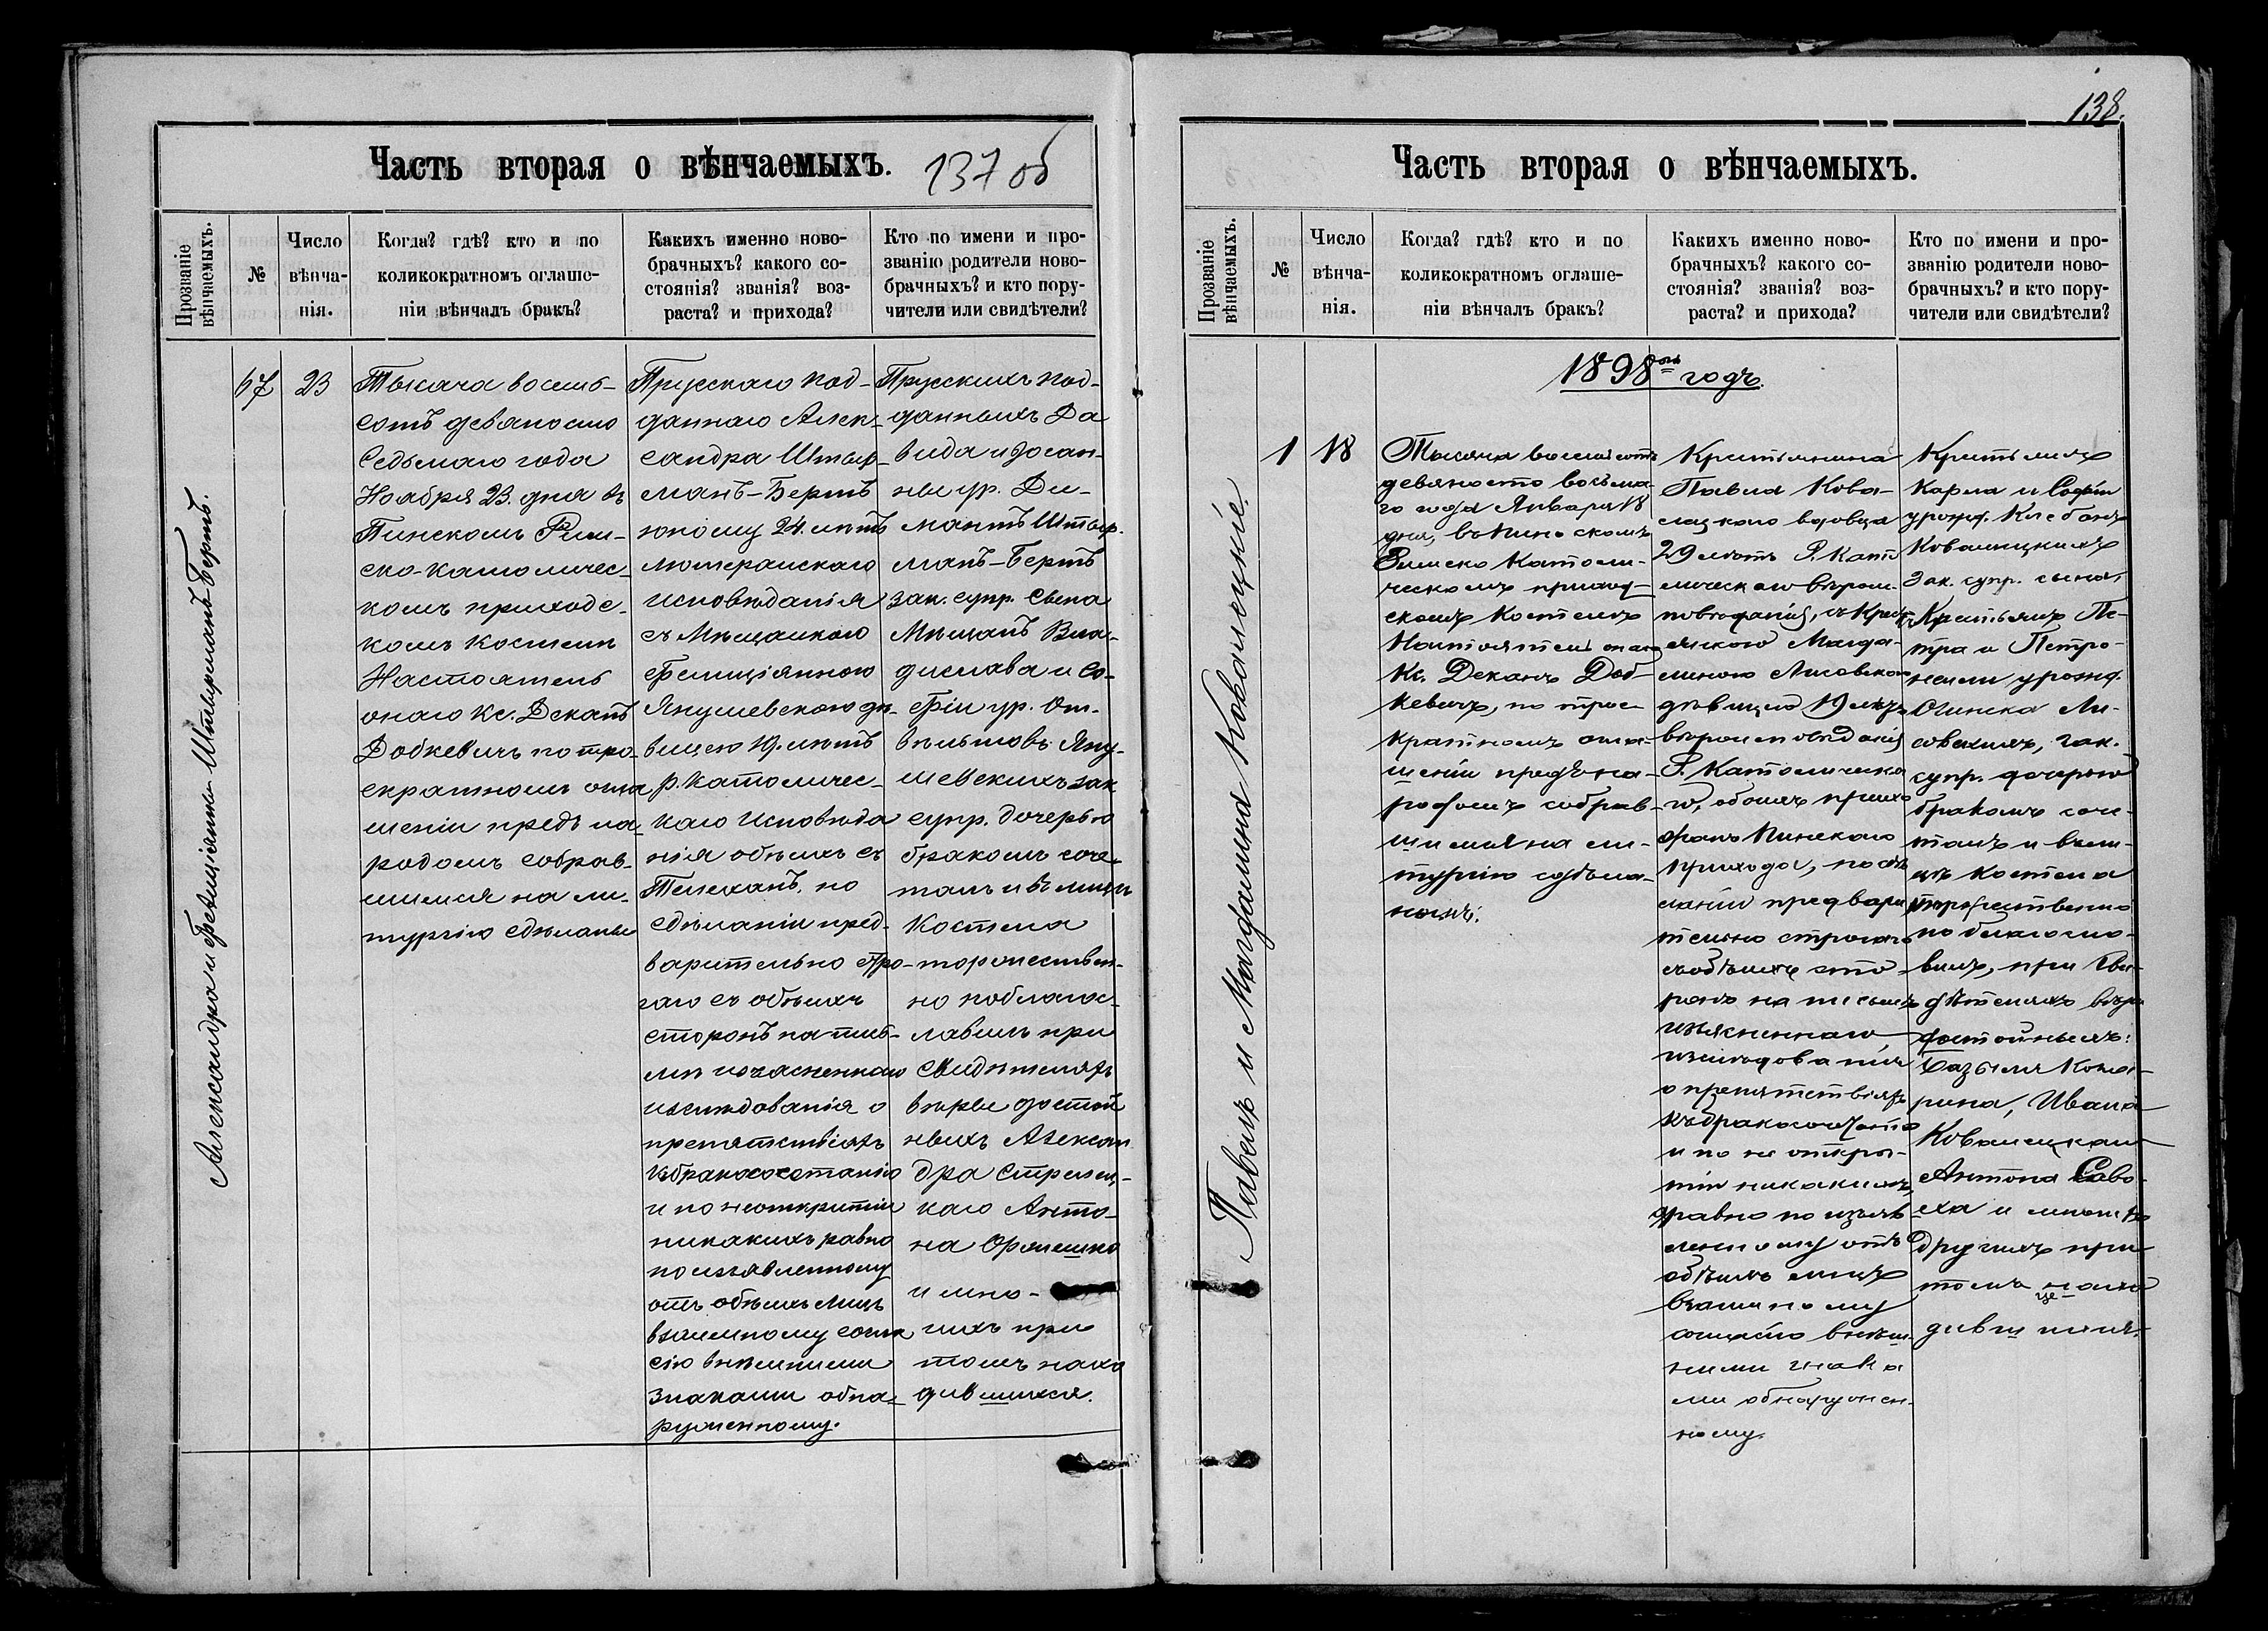 Часть вторая о вѣнчаемыхъ.
137 об
Прозваніе
вѣнчаемыхъ.
№
Число
вѣнча-
нія.
Когда? гдѣ? кто и по
коликократномъ оглаше-
ніи вѣнчалъ бракъ?
Какихъ именно ново-
брачныхъ? какого со-
стоянія? званія? воз-
раста? и прихода?
Кто по имени и про-
званію родители ново-
брачныхъ? и кто пору-
чители или свидѣтели?
67
23
Тысяча восемь-
сотъ девяносто
Седьмаго года
Ноября 23. дня въ
Пинскомъ Рим-
ско-католичес-
комъ приходс-
комъ костелѣ
Настоятель
онаго Кс. Деканъ
Добкевичъ по тро-
екратномъ огла
шеніи предъ на-
родомъ собрав-
шимся на ли-
тургію сдѣланы
Прусскаго под-
даннаго Алек-
сандра Штыр-
манъ-Бертъ
юношу 24. лѣтъ
лютеранскаго
исповѣданія
съ Мѣщанкою
Фелиціянною
Янушевскою дѣ-
вицею 19. лѣтъ
р. католичес-
каго исповѣда
нія обѣихъ съ
Телеханъ, по
сдѣланіи пред-
варительно стро-
гаго съ обѣихъ
сторонъ на пись-
мѣ изъясненнаго
изслѣдованія о
препятствіяхъ
къ бракосочетанію
и по неоткрытіи
никакихъ равно
по изъявленному
отъ обѣихъ лицъ
взаимному согла
сію внѣшними
знаками обна-
руженному.
Прусскихъ под-
данныхъ Да
вида и
ны ур. Ди-
мантъ Штыр-
манъ-Бертъ
зак. супр. сына
Мѣщанъ Вла-
дислава и Со-
фіи ур.
Яну-
шевскихъ зак
супр. дочерью
бракомъ соче-
талъ и въ лицѣ
Костела
торжествен-
но поблагос-
лавилъ при
Свидѣтеляхъ
вѣры достой
ныхъ Алексан
дра
каго Анто-
на Оржешко
и мно-
гихъ при
томъ нахо
дившихся.
Александра и Фелиціянна Штырманъ-Бертъ.
138.
Часть вторая о вѣнчаемыхъ.
Прозваніе
вѣнчаемыхъ.
№
Число
вѣнча-
нія.
Когда? гдѣ? кто и по
коликократномъ оглаше-
ніи вѣнчалъ бракъ?
Какихъ именно ново-
брачныхъ? какого со-
стоянія? званія? воз-
раста? и прихода?
Кто по имени и про-
званію родители ново-
брачныхъ? и кто пору-
чители или свидѣтели?
1898 годъ.
1
18
Тысяча восемьсотъ
девяносто восьма-
го года Января 18
дня, въ Пинскомъ
Римско Католи-
ческомъ приход-
скомъ Костелѣ
Настоятель онаго
Кс. Деканъ Доб-
кевичъ, по трое-
кратномъ огла-
шеніи предъ на-
родомъ собрав-
шимся на ли-
тургію сдѣла-
номъ.
Крестьянина
Павла Кова-
лецкаго вдовца
29 лѣтъ Р. Като
лическаго вѣроис-
повѣданія, съ Крест-
янкою Магда-
леною Лисовскою
дѣвицею 19 лѣтъ
вѣроисповѣданія
Р. Католическа
го, обоихъ прихо
жанъ Пинскаго
прихода, по сдѣ
ланіи предвари
тельно строгаго
съ обѣихъ сто-
ронъ на письмѣ
изъясненнаго
изслѣдованія
о препятствіяхъ
къ бракосочетанію
и по не откры-
тіи никакихъ,
равно по изъяв
ленному отъ
обѣихъ лицъ
взаимному
согласію внѣш-
ними знака
ми обнаружен-
ному.
Крестьянъ
Карла и Софіи
урожд.
Ковалецкихъ
Зак. супр. сына,
Крестьянъ Пе-
тра и Петро-
нели урожд.
Ли-
совскихъ, зак.
супр. дочерью
бракомъ соче-
талъ и въ ли-
цѣ Костела
торжественно
по благосло-
вилъ, при Сви-
дѣтеляхъ вѣры
достойныхъ:
Базыля
Ивана
Ковалецкаго
Антона Саво-
и многихъ
другихъ при
томъ нахо
дившихся.
Павелъ и Магдалина Ковалецкіе.